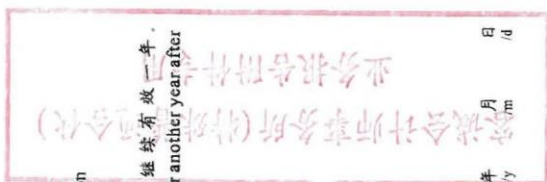 继续有效一年.
r another year after
年 月 日
/y /m /d
容诚会计师事务所(特殊普通合伙)
业务报告附件专用